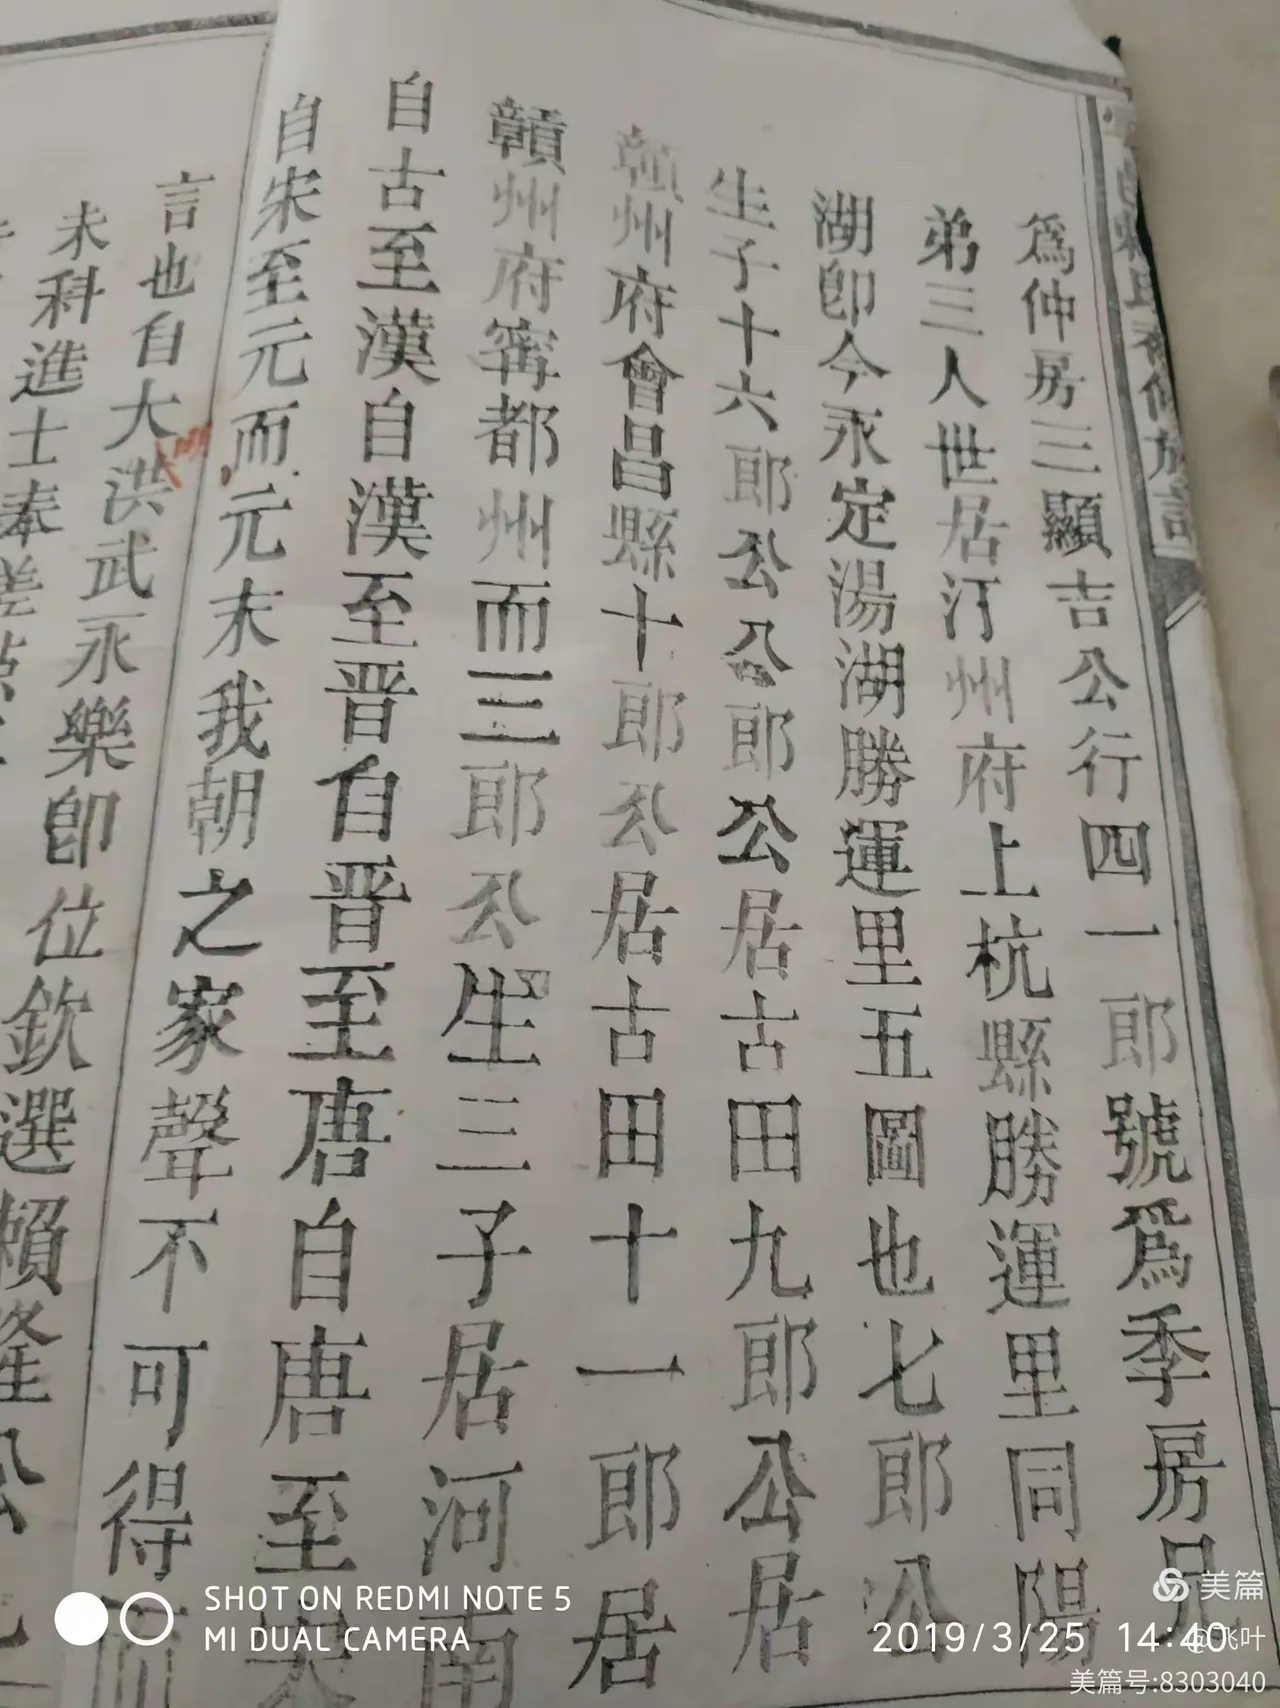 為仲房三顯吉公行四一郎號為季房兄
弟三人世居汀州府上杭縣勝運里同陽
湖即今永定湯湖勝運里五圖也七郎公
生子十六郎公八郎公居古田九郎公居
贛州府會昌縣十郎公居古田十一郎居
贛州府甯都州而三郎公生三子居河南
自古至漢自漢至晉自晉至唐自唐至宋
自宋至元而元末我朝之家聲不可得而
言也自大洪武永樂即位欽選賴隆公
未科進士奉差
SHOT ON REDMI NOTE 5
MI DUAL CAMERA
2019/3/25 14:40
美篇
@飞叶
美篇号:8303040